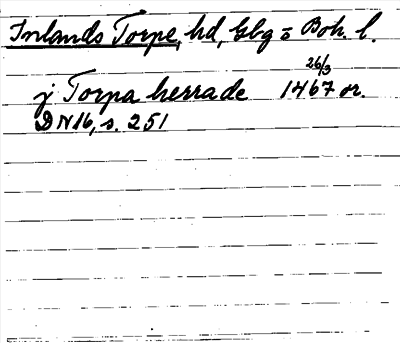 Inlands Torpe, hd, Gbg o Boh. l.
j Torpa herrade 26/3 1467 or.
DN16, s. 251